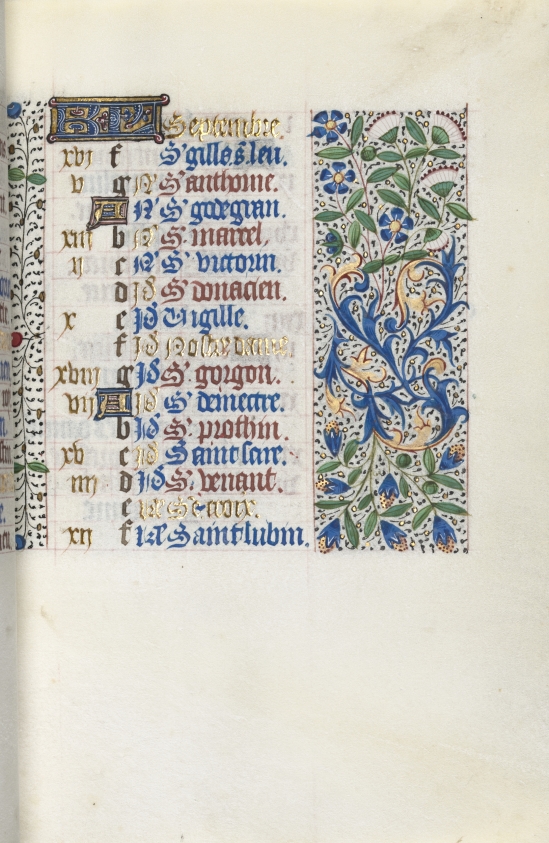 KL Septembre.
xvi f S' gille s. leu.
v g N S' anthoine.
A N S' godegran.
xiii b N S' marcel.
ii c N S' victorin.
d Id S' donacien.
x e Id Vigille.
f Id Nostre dame.
xviii g Id S' gorgon.
vii A Id S' demectre.
b Id S' prothin.
xv c Id Saint
iiii d Id S' venant.
e Kl Ste croix.
xii f Kl Saint lubin.